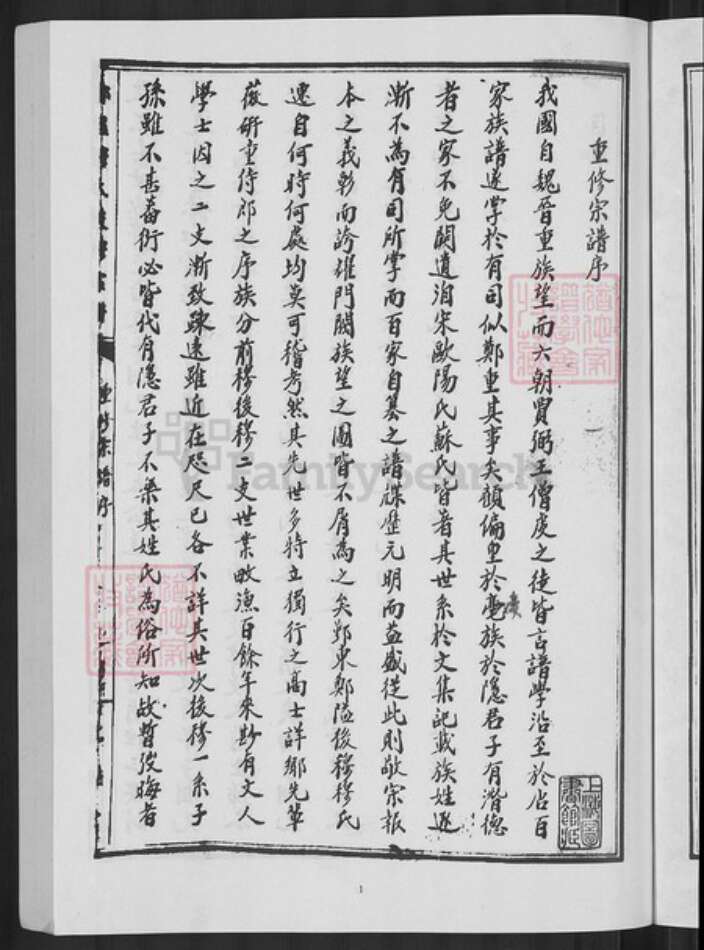 重修宗譜序
我國自魏晉重族望而六朝賈弼王僧虔之徒皆言譜學沿至於唐百
家族譜遂掌於有司似鄭重其事矣顧偏重於豪族於隱君子有潛德
者之家不免闕遺洎宋歐陽氏蘇氏皆著其世系於文集記載族姓遂
漸不為有司所掌而百家自纂之譜牒歷元明而益盛從此則敬宗報
本之義彰而誇雄門閥族望之圖皆不屑為之矣鄞東鄭隘後穆穆氏
遷自何時何處均莫可稽考然其先世多特立獨行之高士詳鄉先輩
薇研童侍郎之序族分前穆後穆二支世業畋漁百餘年來尠有文人
學士因之二支漸致疎遠雖近在咫尺已各不詳其世次後穆一系子
孫雖不甚蕃衍必皆代有隱君子不樂其姓氏為俗所知故暫從晦者
重修宗譜序
一
上海圖書館藏
FamilySearch
1